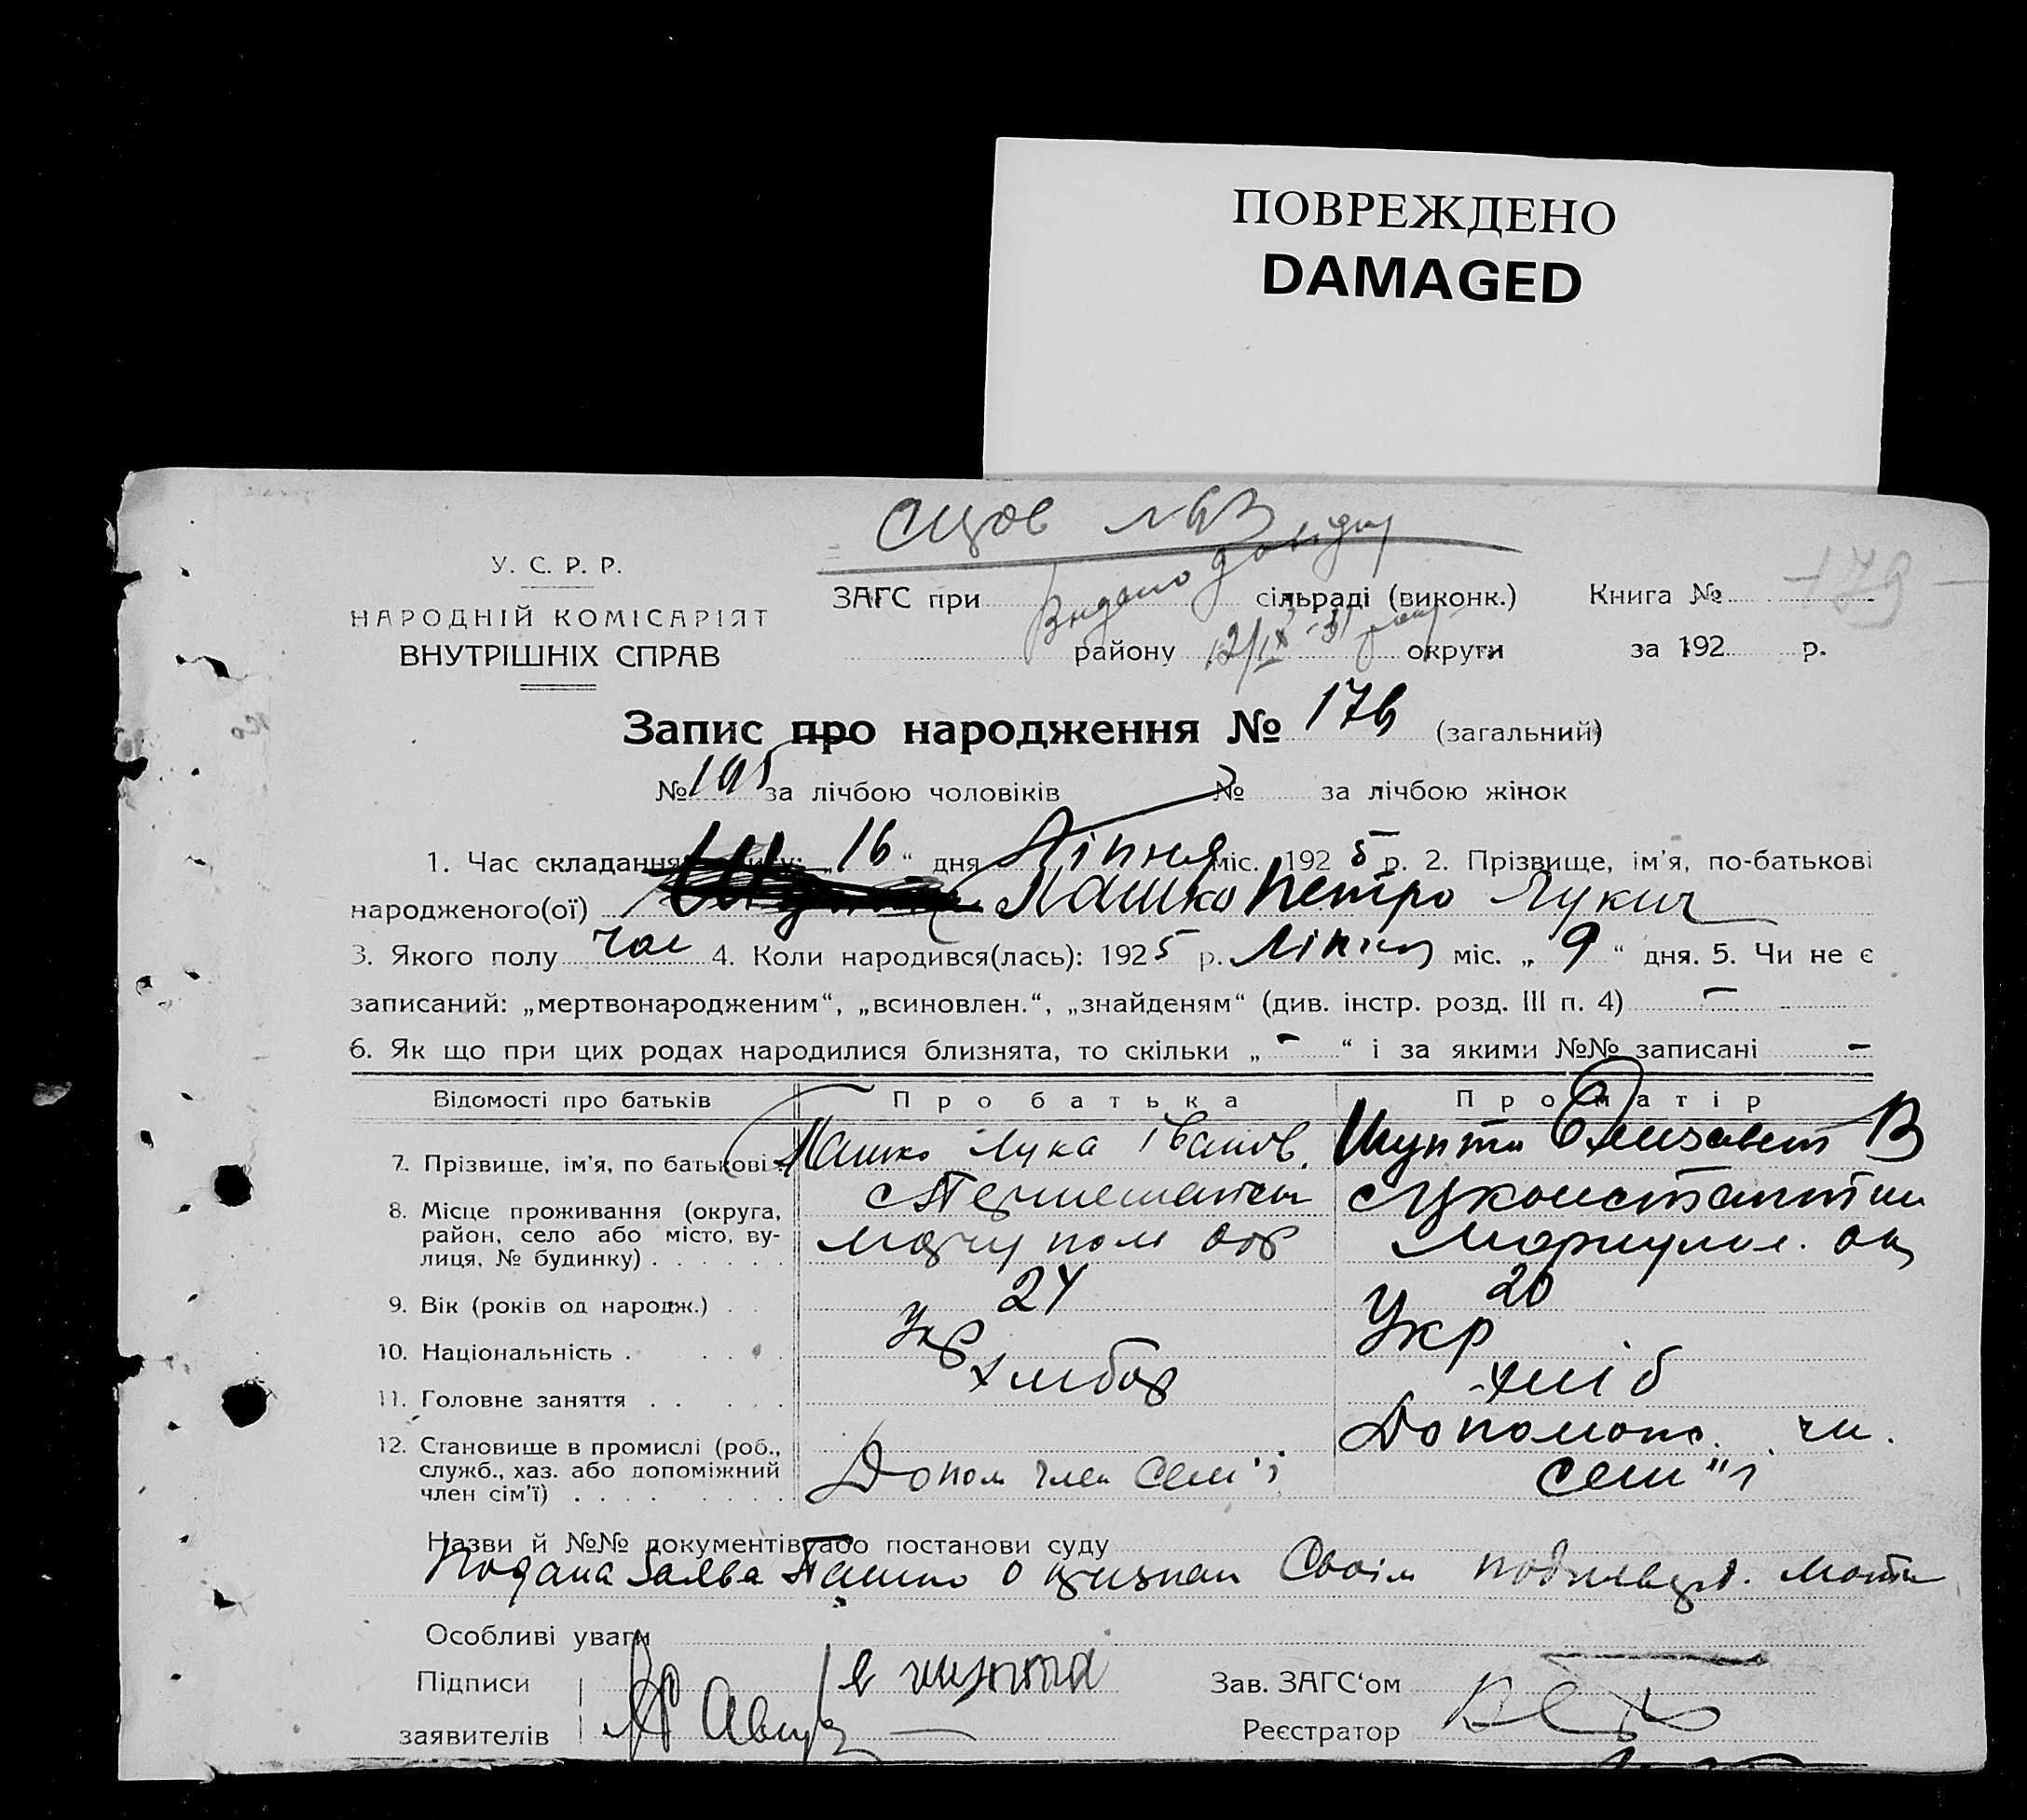 ПОВРЕЖДЕНО
DAMAGED
У. С. Р. Р.
НАРОДНІЙ КОМІСАРІЯТ
ВНУТРІШНІХ СПРАВ
Видано довідку
ЗАГС при сільраді (виконк.) Книга № 179
району 12/IX 31 округи за 192 р.
Запис про народження № 176 (загальний)
№ 105 за лічбою чоловіків № за лічбою жінок
1. Час складання запису: „16“ дня Ліпня міс. 1925 р. 2. Прізвище, ім'я, по-батькові
народженого(ої) Пашко Петро Лукич
3. Якого полу чол 4. Коли народився(лась): 1925 р. Ліпня міс. „9“ дня. 5. Чи не є
записаний: „мертвонародженим“, „всиновлен.“, „знайденям“ (див. інстр. розд. III п. 4) –
6. Як що при цих родах народилися близнята, то скільки „-“ і за якими №№ записані –
Відомості про батьків Про батька Про матір
7. Прізвище, ім'я, по батькові Пашко Лука Іванов. Шупта Єлизавет В
8. Місце проживання (округа,
район, село або місто, ву-
лиця, № будинку)
9. Вік (років од народж.) 24 20
10. Національність Укр Укр
11. Головне заняття хлібор хліб
12. Становище в промислі (роб.,
служб., хаз. або допоміжний
член сім'ї) Допом член Сем'ї Допомож. чл. сем"ї
Назви й №№ документів або постанови суду
Подана Заява Пашко о признан Своім
Особливі уваги
Підписи Зав. ЗАГС'ом
заявителів Реєстратор